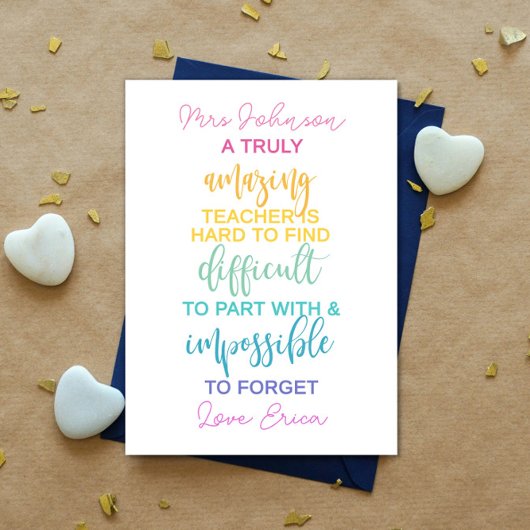 Mrs Johnson
A TRULY
amazing
TEACHER IS
HARD TO FIND
difficult
TO PART WITH &
impossible
TO FORGET
Love Erica